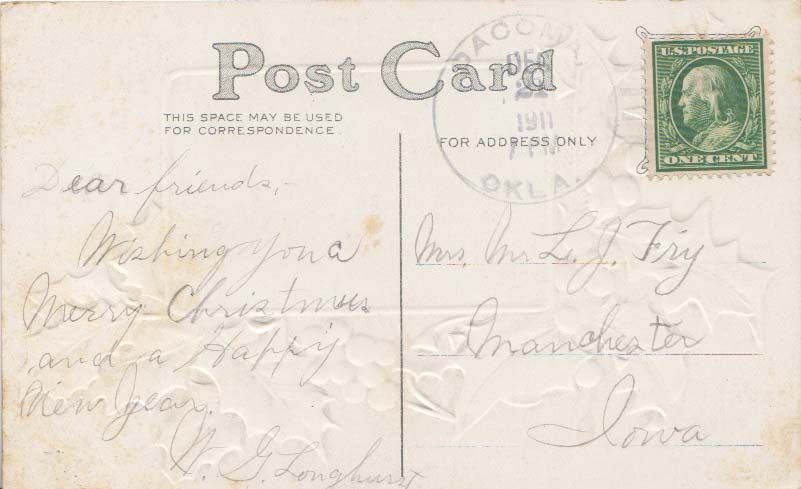 Post Card
THIS SPACE MAY BE USED
FOR CORRESPONDENCE
FOR ADDRESS ONLY
DACOMA
DEC
22
1911
7 PM
OKLA.
U.S. POSTAGE
ONE CENT
Dear friends,-
Wishing you a
Merry Christmas
and a Happy
New Year.
W. G. Longhurst
Mrs. Mr L. J. Fry
Manchester
Iowa